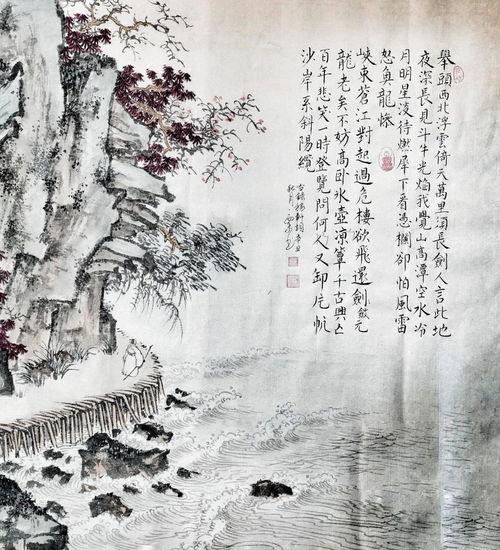 舉頭西北浮雲倚天萬里須長劍人言此地
夜深長見斗牛光焰我覺山高潭空水冷
月明星淡待燃犀下看憑欄卻怕風雷
怒魚龍慘
峽束蒼江對起過危樓欲飛還劍斂元
龍老矣不妨高卧冰壺涼簟千古興亡
百年悲笑一時登覽問何人又卸片帆
沙岸系斜陽纜
稼軒詞辛丑
秋月